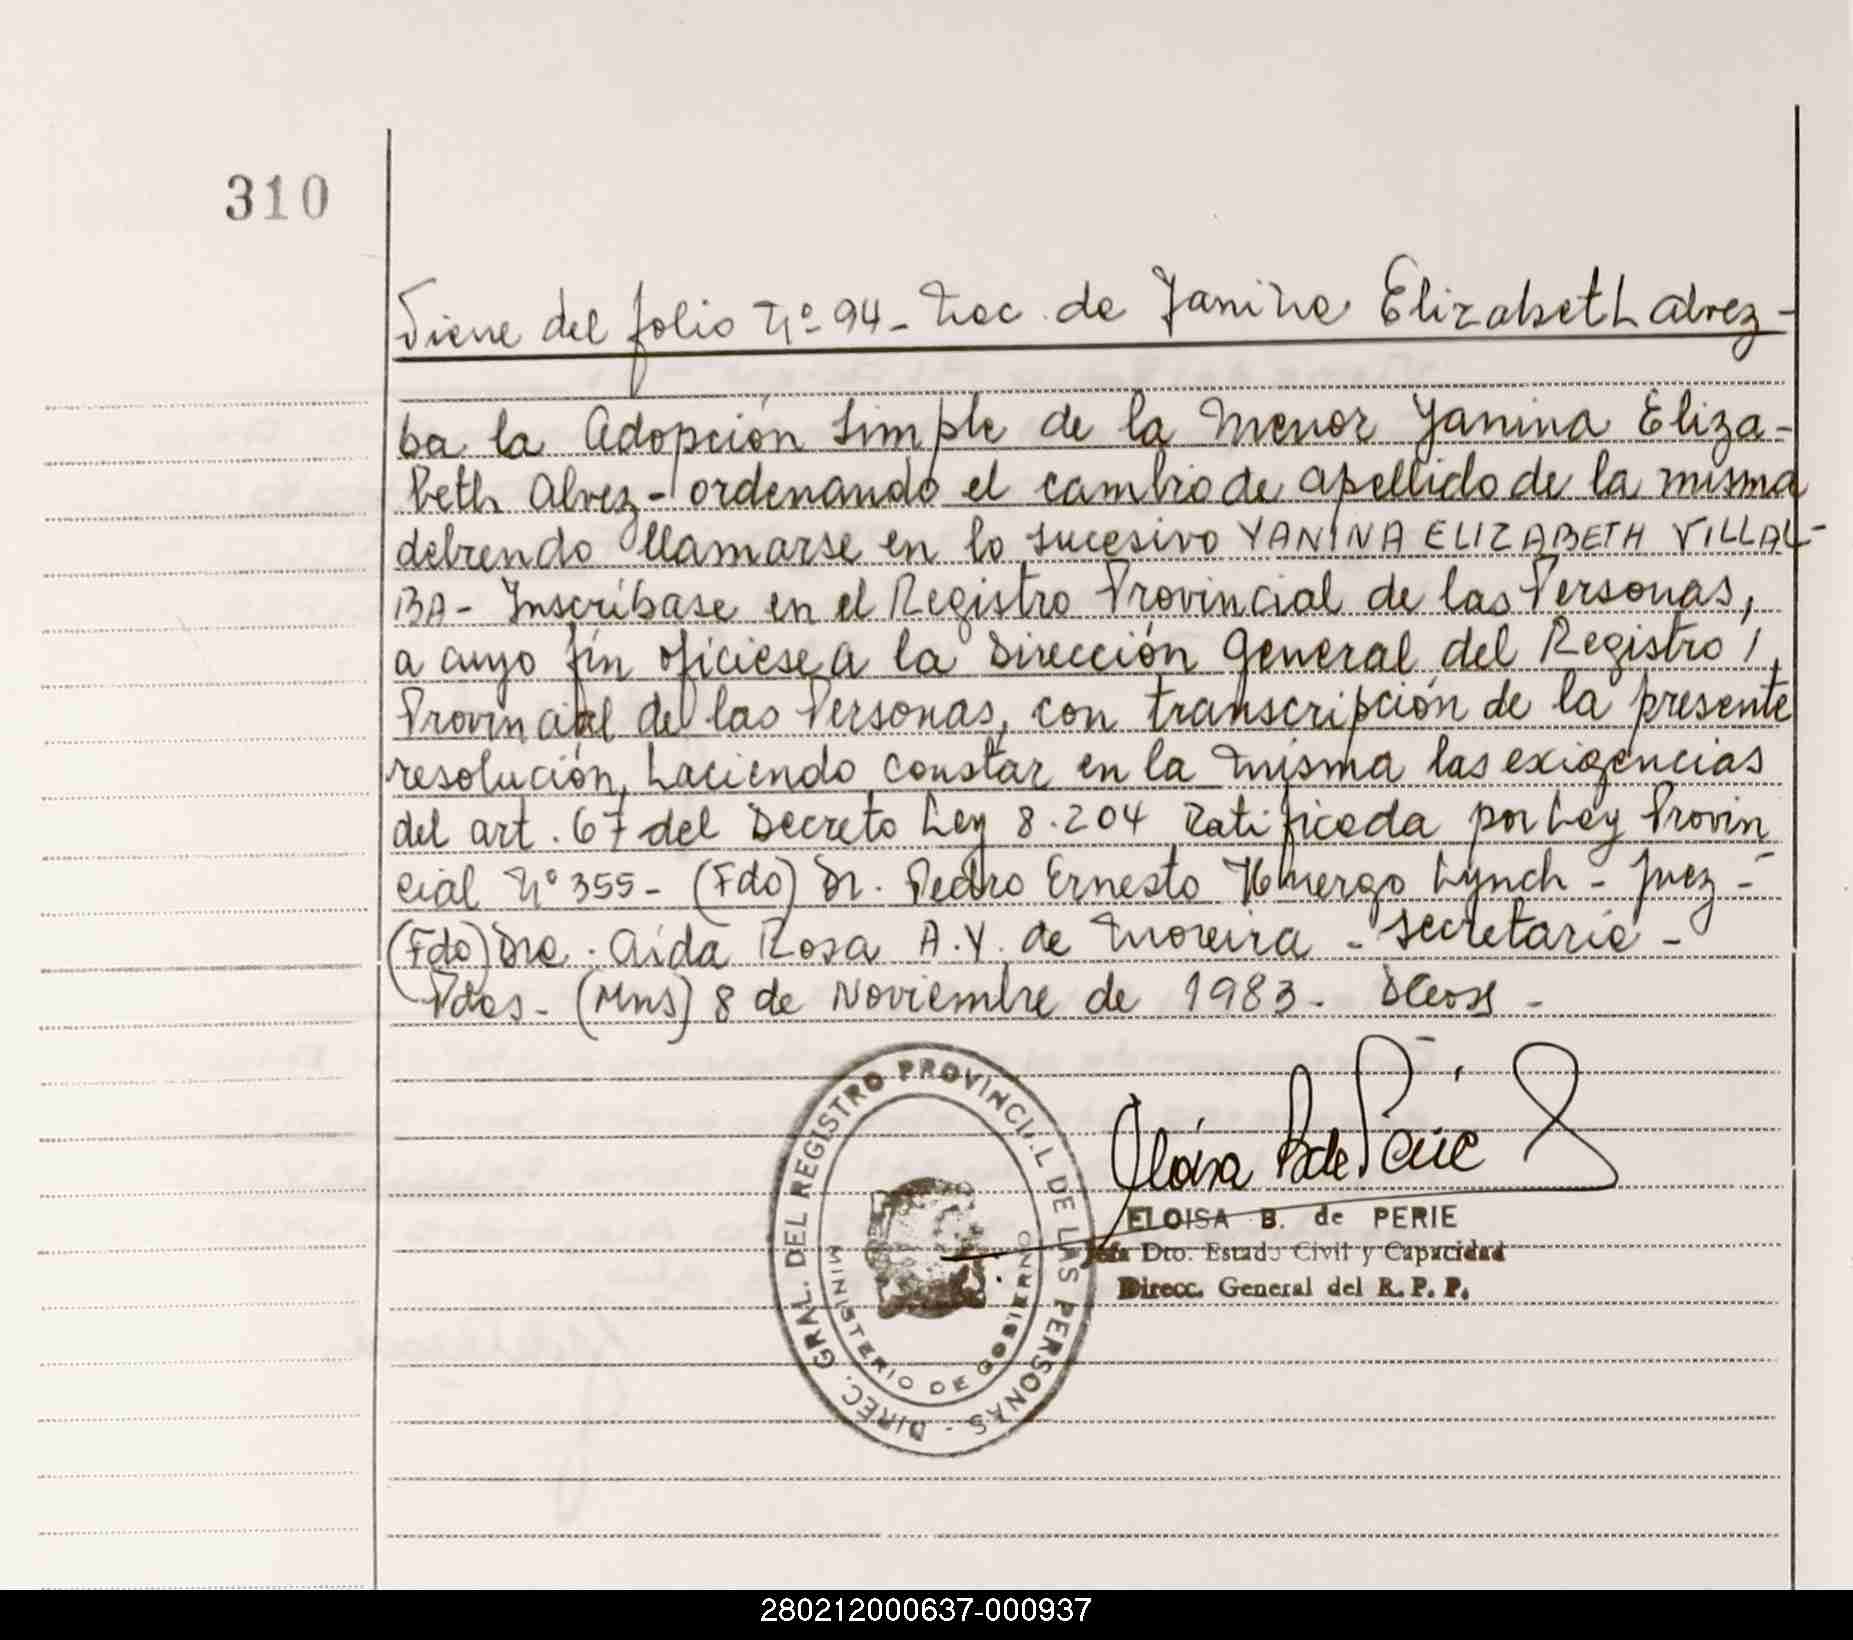 310
Viene del folio Nº 94 - Nac. de Yanina Elizabeth Alvez -
ba la Adopción Simple de la Menor Yanina Eliza-
beth Alvez - ordenando el cambio de apellido de la misma
debiendo llamarse en lo sucesivo YANINA ELIZABETH VILLAL-
BA - Inscríbase en el Registro Provincial de las Personas,
a cuyo fin ofíciese a la Dirección General del Registro /
Provincial de las Personas, con transcripción de la presente
resolución, haciendo constar en la misma las exigencias
del art. 67 del Decreto Ley 8.204 Ratificada por Ley Provin
cial Nº 355 - (Fdo) Dr. Pedro Ernesto Huergo Lynch - Juez -
(Fdo) Dra. Aida Rosa A.Y. de Moreira - Secretaria -
Pdas - (Mns) 8 de Noviembre de 1983 -
DIREC. GRAL. DEL REGISTRO PROVINCIAL DE LAS PERSONAS -
MINISTERIO DE GOBIERNO
Eloisa B de Perié
ELOISA B. de PERIE
Jefa Dto. Estado Civil y Capacidad
Direcc. General del R. P. P.
280212000637-000937